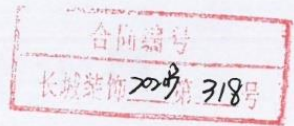 合同编号
长城装饰2020第318号